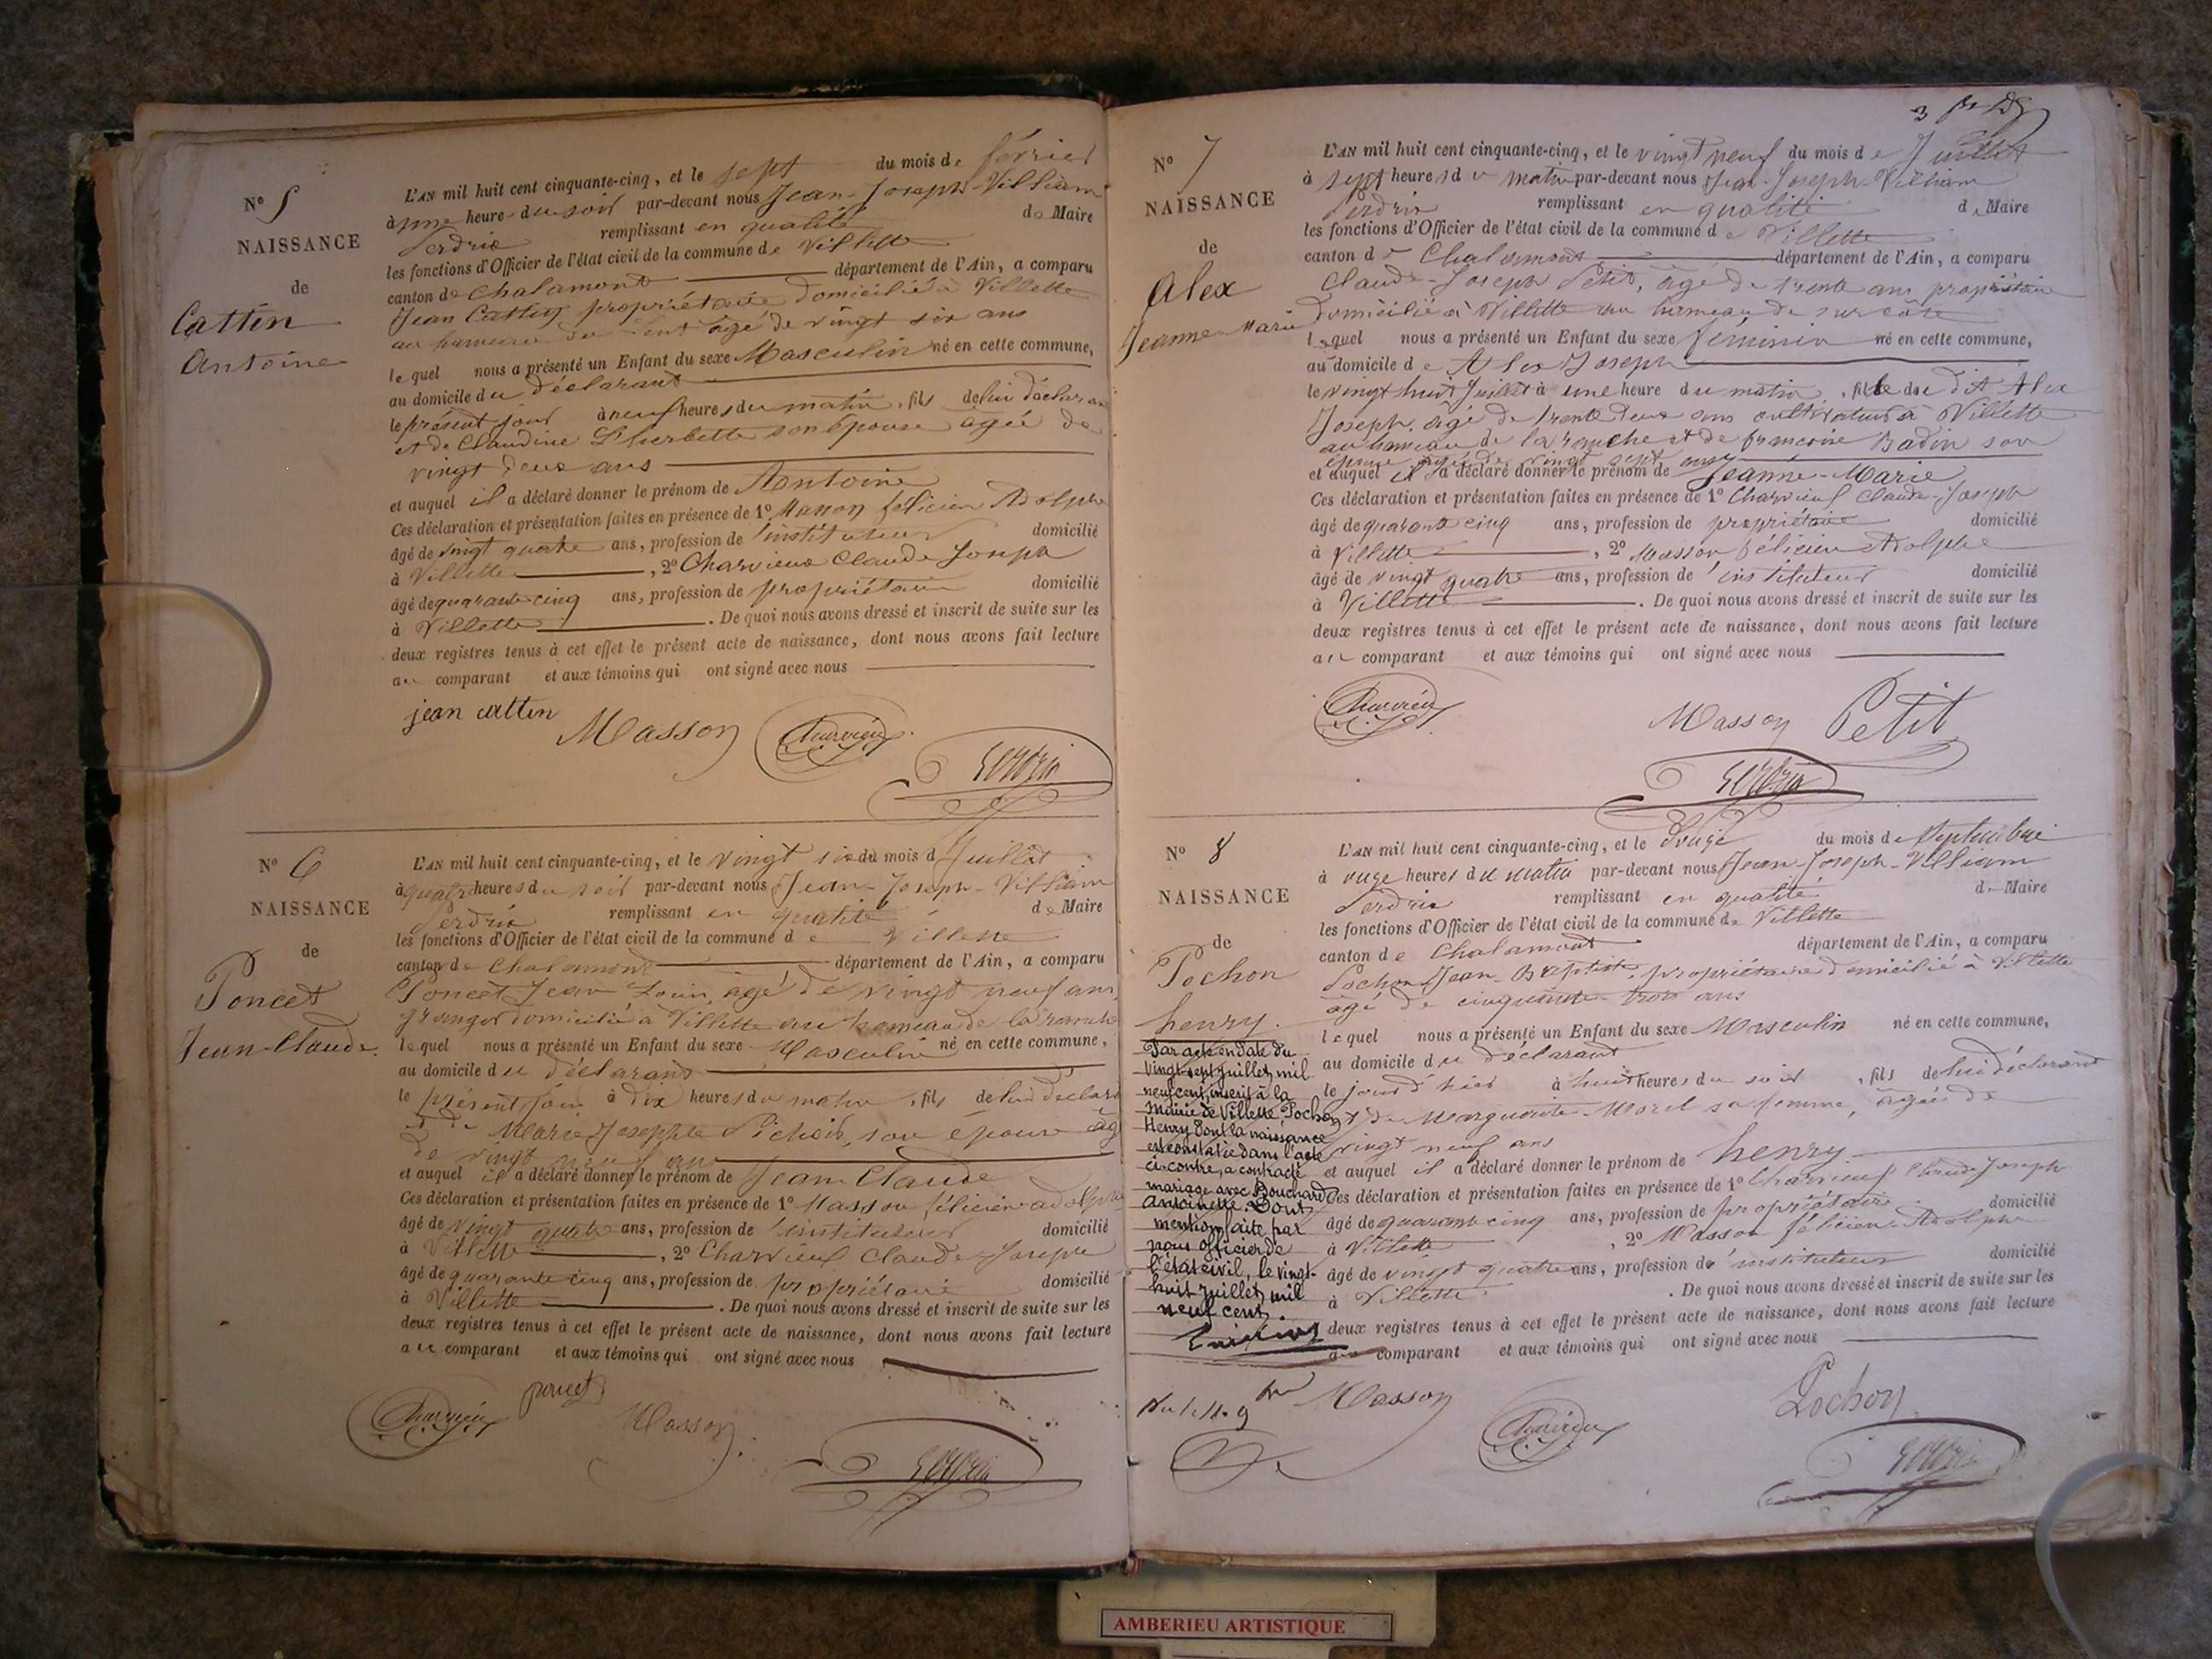 N° 5
NAISSANCE
de
Cattin
Antoine
L'AN mil huit cent cinquante-cinq, et le sept du mois de février
à une heure du soir par-devant nous Jean-Joseph-Villiam
Perdrix remplissant en qualité de Maire
les fonctions d'Officier de l'état civil de la commune de Villette
canton de Chalamont département de l'Ain, a comparu
Jean Cattin propriétaire domicilié à Villette
au hameau âgé de vingt six ans
lequel nous a présenté un Enfant du sexe Masculin né en cette commune,
au domicile du déclarant
le présent jour à neuf heures du matin, fils de lui déclarant
et de Claudine L'herbette son épouse agée de
vingt deux ans
et auquel il a déclaré donner le prénom de Antoine
Ces déclaration et présentation faites en présence de 1° Masson félicien Adolphe
âgé de vingt quatre ans, profession de instituteur domicilié
à Villette, 2° Charvieux Claude Joseph
âgé de quarante cinq ans, profession de propriétaire domicilié
à Villette. De quoi nous avons dressé et inscrit de suite sur les
deux registres tenus à cet effet le présent acte de naissance, dont nous avons fait lecture
au comparant et aux témoins qui ont signé avec nous
jean cattin Masson Charvieux
Perdrix
N° 6
NAISSANCE
de
Poncet
Jean-Claude.
L'AN mil huit cent cinquante-cinq, et le vingt six du mois d Juillet
à quatre heures du soir par-devant nous Jean-Joseph-Villiam
Perdrix remplissant en qualité de Maire
les fonctions d'Officier de l'état civil de la commune de Villette
canton de Chalamont département de l'Ain, a comparu
Poncet Jean Louis, agé de vingt neuf ans,
granger domicilié à Villette au hameau de la ranche
lequel nous a présenté un Enfant du sexe Masculin né en cette commune,
au domicile du déclarant
le présent jour à dix heures du matin, fils de lui déclarant
et de Marie Josephte Pichois, son épouse âg
de vingt neuf ans
et auquel il a déclaré donner le prénom de Jean Claude
Ces déclaration et présentation faites en présence de 1° Masson félicien adolphe
âgé de vingt quatre ans, profession de instituteur domicilié
à Villette, 2° Charvieux Claude-Joseph
âgé de quarante cinq ans, profession de propriétaire domicilié
à Villette. De quoi nous avons dressé et inscrit de suite sur les
deux registres tenus à cet effet le présent acte de naissance, dont nous avons fait lecture
au comparant et aux témoins qui ont signé avec nous
Charvieux poncet Masson
Perdrix
3
N° 7
NAISSANCE
de
Alex
Jeanne-Marie
L'AN mil huit cent cinquante-cinq, et le vingt neuf du mois de Juillet
à sept heures du matin par-devant nous Jean-Joseph-Villiam
Perdrix remplissant en qualité de Maire
les fonctions d'Officier de l'état civil de la commune de Villette
canton de Chalamont département de l'Ain, a comparu
Claude-Joseph Petit, âgé de trente ans propriétaire
domicilié à Villette au hameau de sur côte
lequel nous a présenté un Enfant du sexe féminin né en cette commune,
au domicile de Alex Joseph
le vingt huit Juillet à une heure du matin, fille du dit Alex
Joseph, âgé de trente deux ans cultivateur à Villette
au hameau de la ranche et de francoise Badin son
épouse agée de vingt sept ans
et auquel il a déclaré donner le prénom de Jeanne-Marie
Ces déclaration et présentation faites en présence de 1° Charvieux Claude-Joseph
âgé de quarante cinq ans, profession de propriétaire domicilié
à Villette, 2° Masson félicien Adolphe
âgé de vingt quatre ans, profession de instituteur domicilié
à Villette. De quoi nous avons dressé et inscrit de suite sur les
deux registres tenus à cet effet le présent acte de naissance, dont nous avons fait lecture
au comparant et aux témoins qui ont signé avec nous
Charvieux Masson Petit
Perdrix
N° 8
NAISSANCE
de
Pochon
henry.
Par acte en date du
vingt-sept juillet mil
neuf cent, inscrit à la
mairie de Villette Pochon
Henry dont la naissance
est constatée dans l'acte
ci-contre, a contracté
mariage avec Bouchard
Antoinette. Dont
mention faite par
nous officier de
l'état civil, le vingt-
huit juillet mil
neuf cent.
L'AN mil huit cent cinquante-cinq, et le douze du mois de Septembre
à onze heures du matin par-devant nous Jean-Joseph-Villiam
Perdrix remplissant en qualité de Maire
les fonctions d'Officier de l'état civil de la commune de Villette
canton de Chalamont département de l'Ain, a comparu
Pochon Jean-Baptiste propriétaire domicilié à Villette
âgé de cinquante-trois ans
lequel nous a présenté un Enfant du sexe Masculin né en cette commune,
au domicile du déclarant
le jour d'hier à huit heures du soir, fils de lui déclarant
et de Marguerite Morel sa femme, agée de
vingt neuf ans
et auquel il a déclaré donner le prénom de henry
Ces déclaration et présentation faites en présence de 1° Charvieux Claude Joseph
âgé de quarante cinq ans, profession de propriétaire domicilié
à Villette, 2° Masson félicien Adolphe
âgé de vingt quatre ans, profession de instituteur domicilié
à Villette. De quoi nous avons dressé et inscrit de suite sur les
deux registres tenus à cet effet le présent acte de naissance, dont nous avons fait lecture
au comparant et aux témoins qui ont signé avec nous
Masson Charvieux Pochon
Perdrix
AMBERIEU ARTISTIQUE